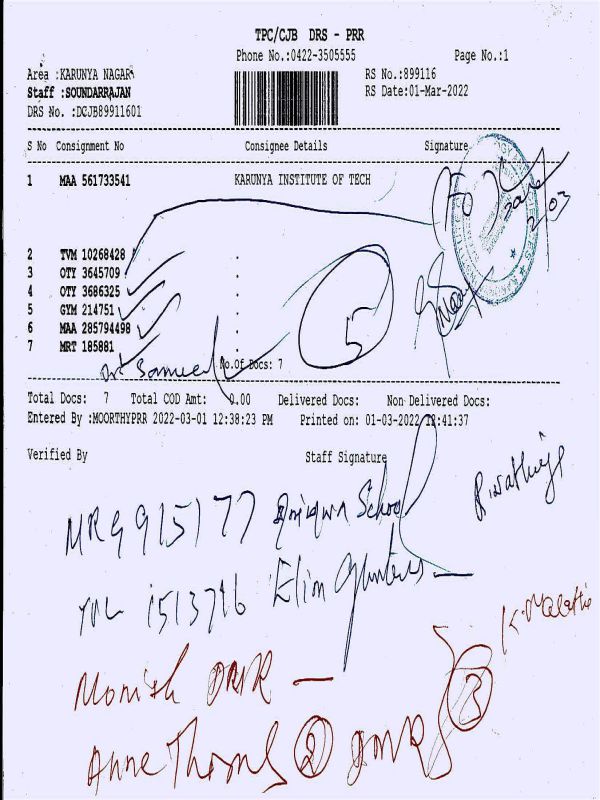 TPC/CJB DRS - PRR
Phone No.:0422-3505555 Page No.:1
Area :KARUNYA NAGAR RS No.:899116
Staff :SOUNDARRAJAN RS Date:01-Mar-2022
DRS No. :DCJB89911601
S No Consignment No Consignee Details Signature
1 MAA 561733541 KARUNYA INSTITUTE OF TECH
2/03
2 TVM 10268428
3 OTY 3645709
4 OTY 3686325
5 GYM 214751
5
6 MAA 285794498
7 MRT 185881
Samuel No.Of Docs: 7
Total Docs: 7 Total COD Amt: 0.00 Delivered Docs: Non Delivered Docs:
Entered By :MOORTHYPRR 2022-03-01 12:38:23 PM Printed on: 01-03-2022 12:41:37
Verified By Staff Signature
School
1513796 Elim
K. Malathi
Monish
3
Anne Thomas 2